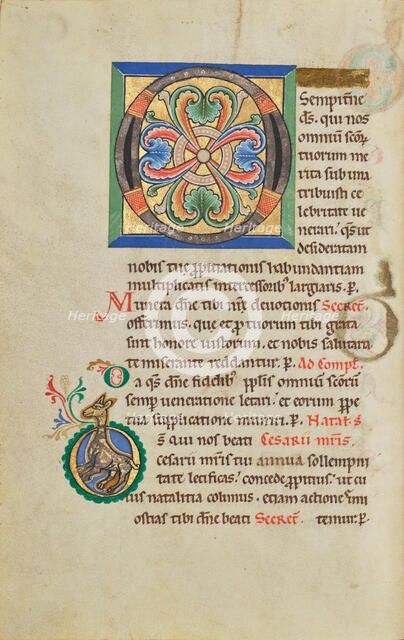 Sempitne
ds. qui nos
omniū scōr̄
tuorum me
rita sub una
tribuisti ce
lebritate ue
nerari. qs ut
desideratam
nobis tuę ppitiationis habundantiam
multiplicatis intercessoribus largiaris. P.
Munera dn̄e tibi nr̄ę deuotionis Secret̄
offerimus. que et p tuorum tibi grata
sint honore iustorum. et nobis salutaria
te miserante reddantur. P. Ad Compl.
Da qs dn̄e fidelib; pplis omniū scōrū
semp ueneratione letari. et eorum ppe
tua supplicatione muniri. P. Natal. S
DS qui nos beati Cesarii mr̄is.
cesarii mr̄is tui annua sollempni
tate letificas. concede ppitius. ut cu
ius natalitia colimus. etiam actione
Hostias tibi dn̄e beati Secret̄ temur. P.
Heritage
Images